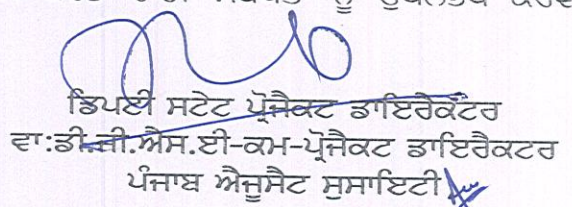 ਡਿਪਟੀ ਸਟੇਟ ਪ੍ਰੋਜੈਕਟ ਡਾਇਰੈਕਟਰ
ਵਾ:ਡੀ.ਜੀ.ਐਸ.ਈ-ਕਮ-ਪ੍ਰੋਜੈਕਟ ਡਾਇਰੈਕਟਰ
ਪੰਜਾਬ ਐਜੂਸੈਟ ਸੁਸਾਇਟੀ